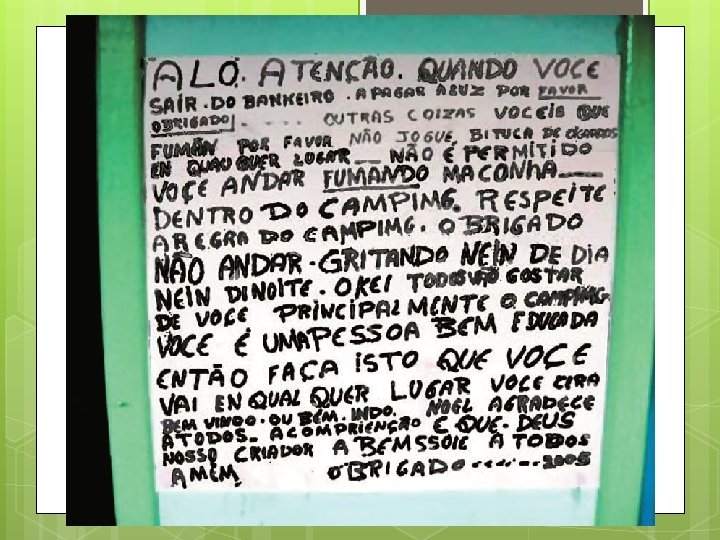 ALO. ATENÇÃO. QUANDO VOCE
SAIR. DO BANHEIRO. APAGAR A LUZ POR FAVOR
OBRIGADO. ..... OUTRAS COIZAS VOCEIS QUE
FUMÁN POR FAVOR NÃO JOGUE, BITUCA DE CIGARROS
EN QUAU QUER LUGAR ___ NÃO É PERMITIDO
VOÇE ANDAR FUMANDO MACONHA___
DENTRO DO CAMPIMG. RESPEITE
A REGRA DO CAMPIMG. OBRIGADO
NÃO ANDAR. GRITANDO NEIN DE DIA
NEIN DINOITE. OKEI TODOS VÃO GOSTAR
DE VOCE PRINCIPALMENTE O CAMPIMG
VOCE É UMAPESSOA BEM EDUCADA
ENTÃO FAÇA ISTO QUE VOÇE
VAI EN QUAL QUER LUGAR VOCE CIRA
BEM VINDO. OU BEM. INDO. NOEL AGRADECE
A TODOS_ A COMPRIENÇÃO E QUE. DEUS
NOSSO CRIADOR ABEMSSOIE A TODOS
AMÉM, OBRIGADO ------- 2005